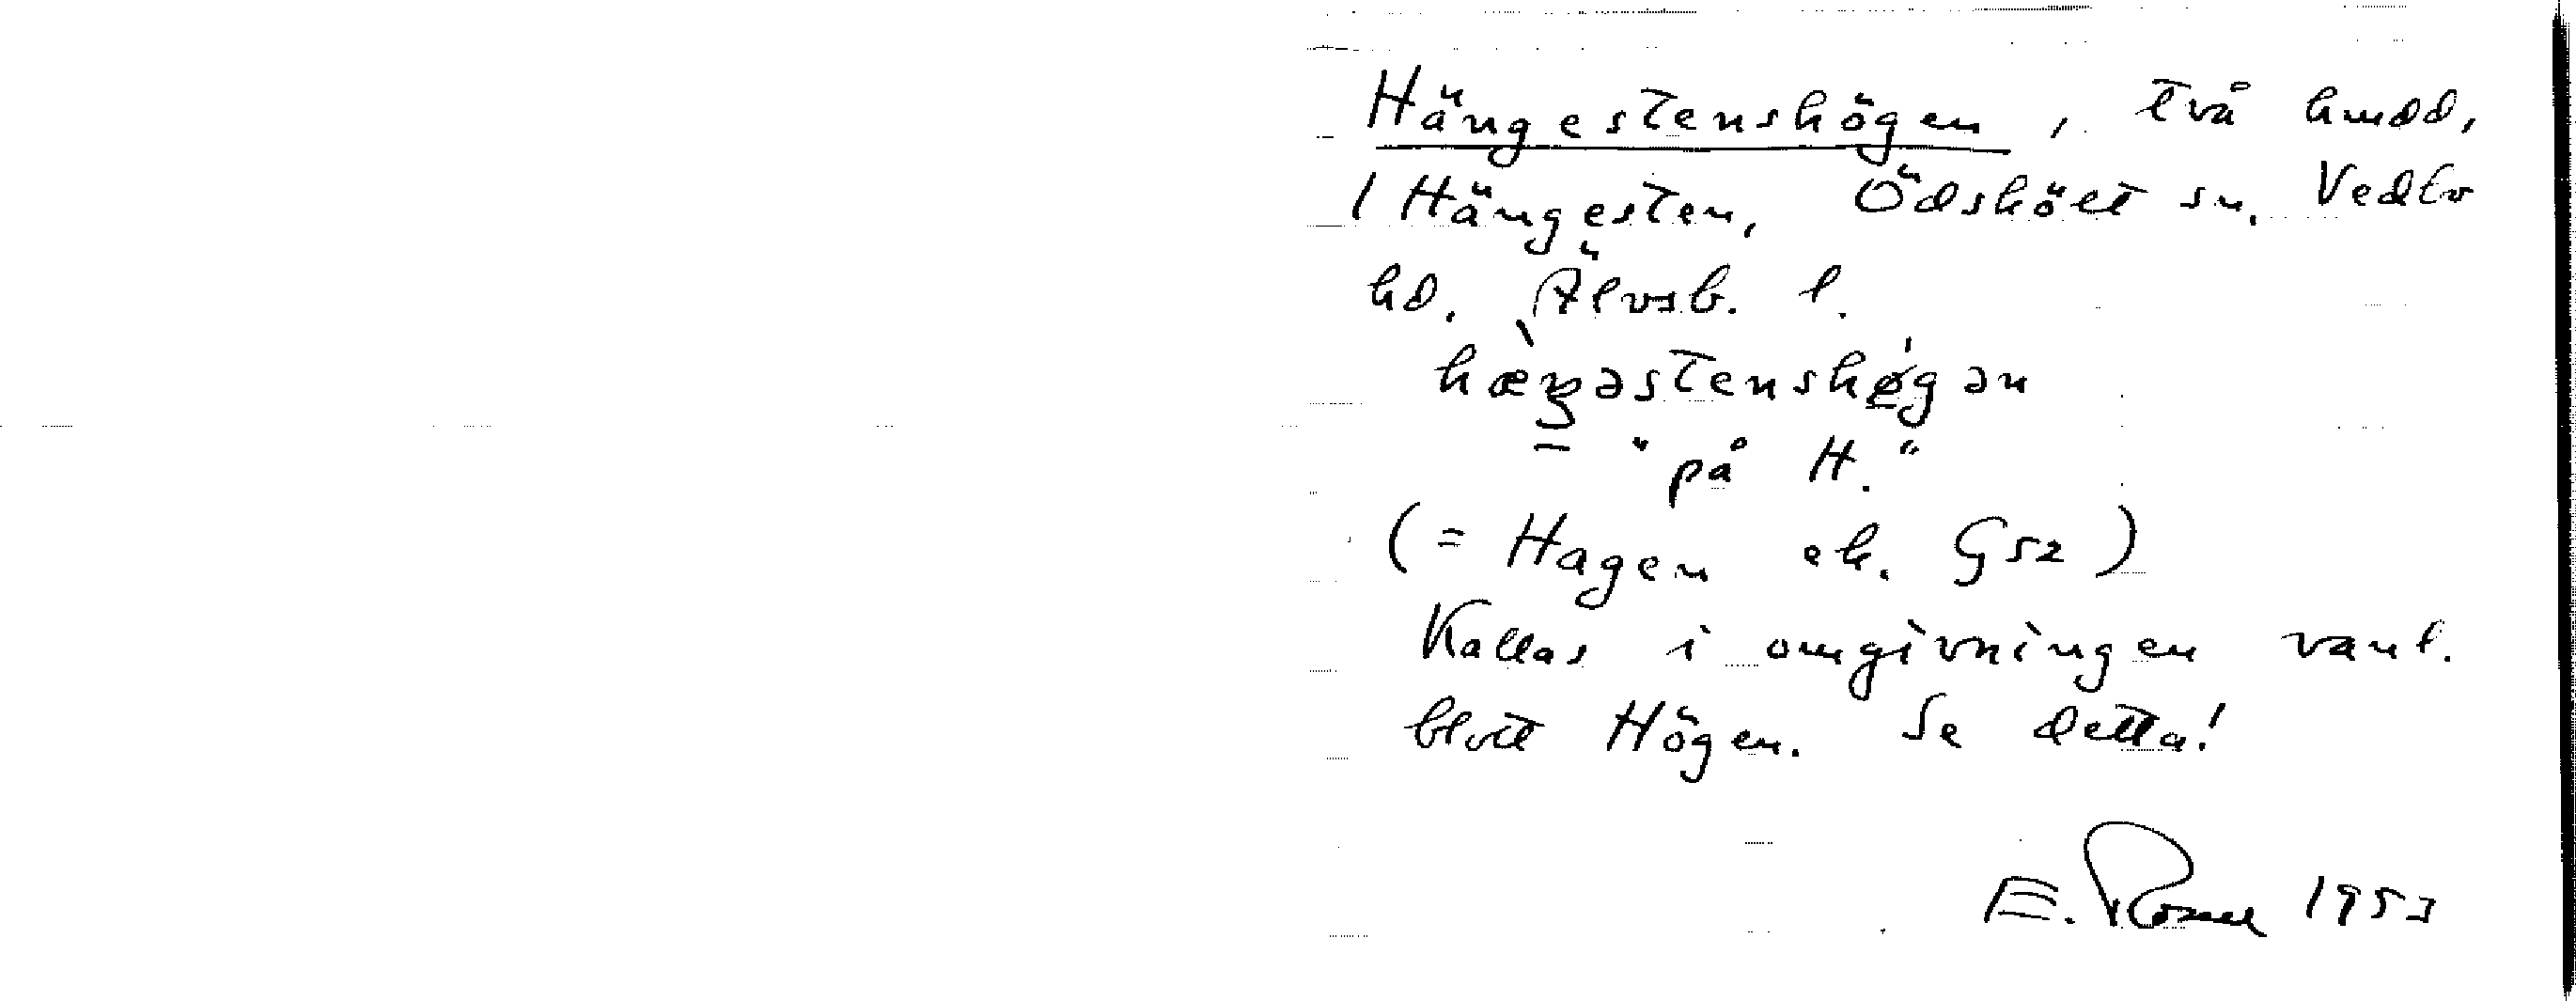 Hängestenshögen, två hmdd,
1 Hängesten, Ödskölt sn. Vedbo
hd. Älvsb. l.
hæŋəstenshøgən
– "på H."
(= Hagen ek. G52)
Kallas i omgivningen vanl.
blott Högen. Se detta!
E. 1953